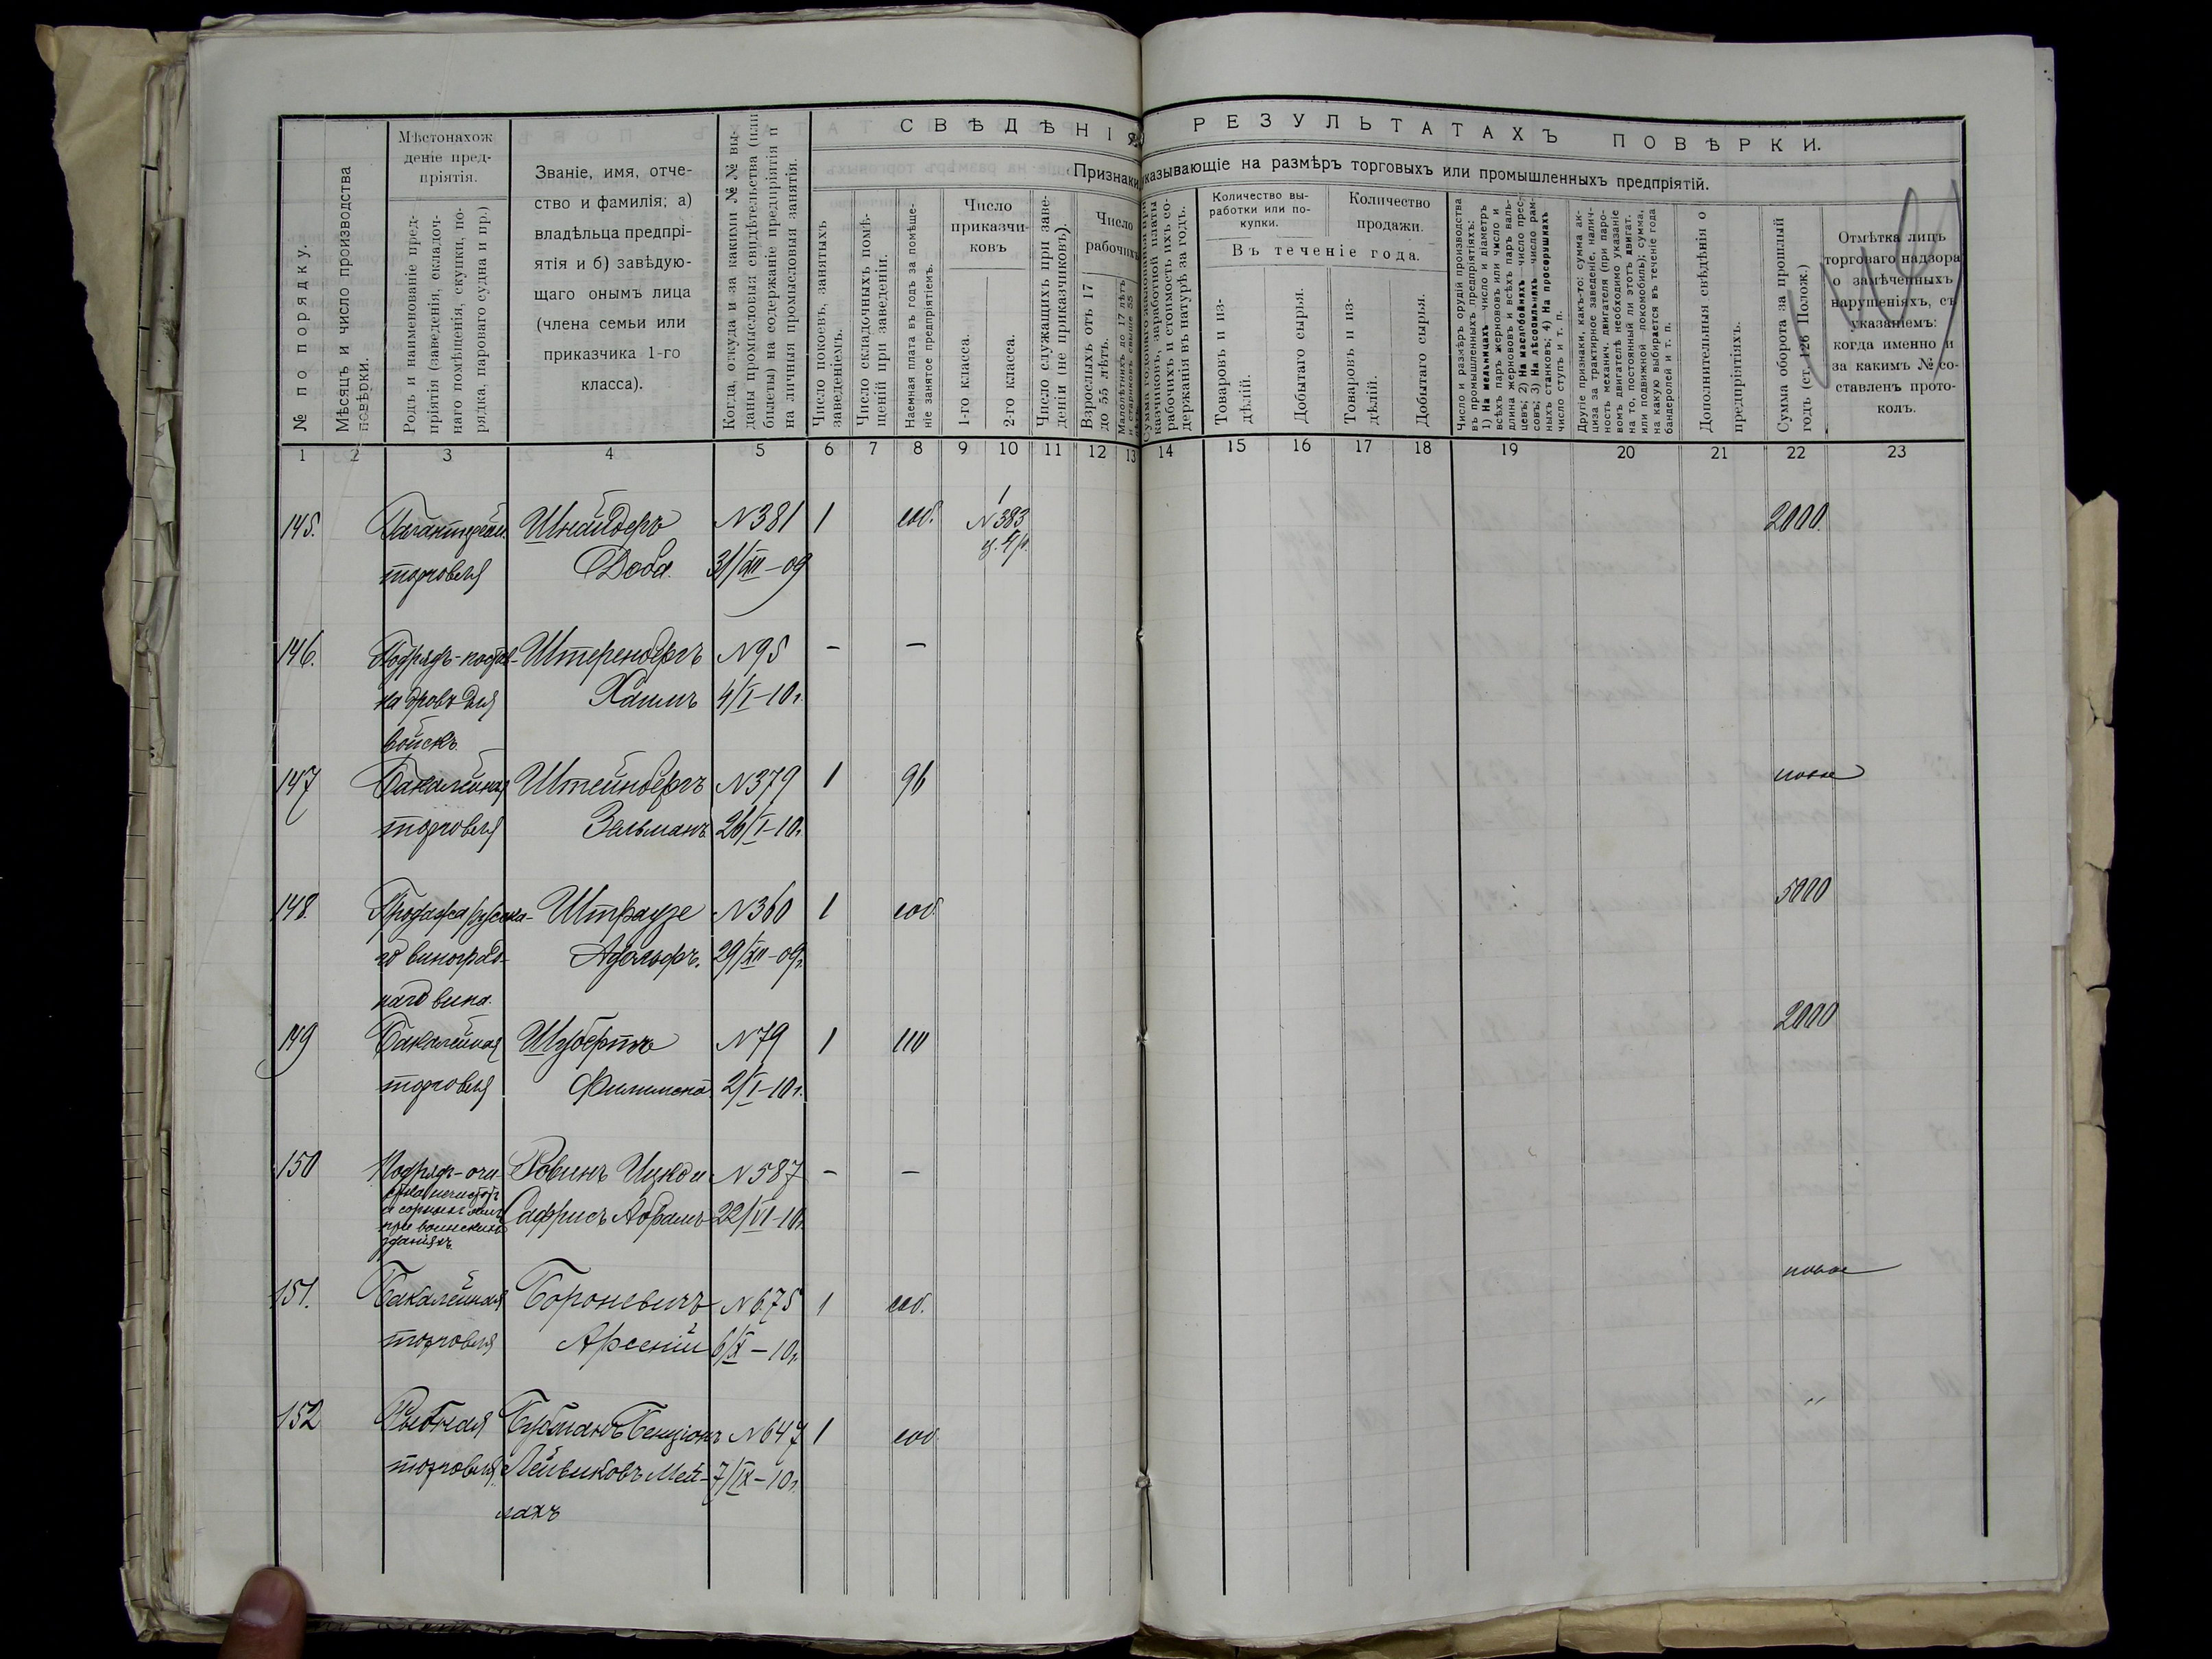 СВѢДѢНІЯ О РЕЗУЛЬТАТАХЪ ПОВѢРКИ.
Признаки, указывающіе на размѣръ торговыхъ или промышленныхъ предпріятій.
№ по порядку.
Мѣсяцъ и число производства
повѣрки.
Мѣстонахож
деніе пред-
пріятія.
Родъ и наименованіе пред-
пріятія (заведенія, складоч-
наго помѣщенія, скупки, по-
рядка, парового судна и пр.)
Званіе, имя, отче-
ство и фамилія; а)
владѣльца предпрі-
ятія и б) завѣдую-
щаго онымъ лица
(члена семьи или
приказчика 1-го
класса).
Когда, откуда и за какими №№ вы-
даны промысловыя свидѣтельства (или
билеты) на содержаніе предпріятія и
на личныя промысловыя занятія.
Число покоевъ, занятыхъ
заведеніемъ.
Число складочныхъ помѣ-
щеній при заведеніи.
Наемная плата въ годъ за помѣще-
ніе занятое предпріятіемъ.
Число
приказчи-
ковъ
1-го класса.
2-го класса.
Число служащихъ при заве-
деніи (не приказчиковъ).
Число
рабочихъ
Взрослыхъ отъ 17
до 55 лѣтъ.
Малолѣтнихъ до 17 лѣтъ
и стариковъ свыше 55
казчиковъ, заработной платы
рабочихъ и стоимость ихъ со-
держанія въ натурѣ за годъ.
Количество вы-
работки или по-
купки.
Количество
продажи.
Въ теченіе года.
Товаровъ и из-
дѣлій.
Добытаго сырья.
Товаровъ и из-
дѣлій.
Добытаго сырья.
Число и размѣръ орудій производства
въ промышленныхъ предпріятіяхъ:
1) На мельницахъ число и діаметръ
всѣхъ паръ жернововъ или число и
длина жернововъ и всѣхъ паръ валь-
цевъ; 2) На маслобойняхъ число прес-
совъ; 3) На лѣсопильняхъ число рам-
ныхъ станковъ; 4) На просорушкахъ
число ступъ и т. п.
Другіе признаки, какъ-то: сумма ак-
циза за трактирное заведеніе, налич-
ность механич. двигателя (при паро-
вомъ двигателѣ необходимо указаніе
на то, постоянный ли этотъ двигат.
или подвижной -локомобиль); сумма,
на какую выбирается въ теченіе года
бандеролей и т. п.
Дополнительныя свѣдѣнія о
предпріятіяхъ.
Сумма оборота за прошлый
годъ (ст. 126 Полож.)
Отмѣтка лицъ
торговаго надзора
о замѣченныхъ
нарушеніяхъ, съ
указаніемъ:
когда именно и
за какимъ № со-
ставленъ прото-
колъ.
1 2 3 4 5 6 7 8 9 10 11 12 13 14 15 16 17 18 19 20 21 22 23
145. Галантерейн. Шнайдеръ N 381 1 соб. 1 2000.
N 383
торговля Доба. 31/XII-09
146. Подрядъ-постав- Штеренбергъ N 95 — —
ка дровъ для Хаимъ 4/I-10г.
войскъ
147 Бакалейная Штейнбергъ N 379 1 96 новое
торговля Зельманъ 26/I-10г.
148. Продажа русска- Штраузе N 360 1 соб 5000
го виноград- Адольфъ. 29/XII-09г.
наго вина.
149 Бакалейная Шубертъ N 79 1 110 2000
торговля 2/I-10г.
150 Подрядъ-очи- Ровинъ Ицко и N 587 — —
стка нечистотъ
Сафрисъ Абрамъ 22/VI-10г.
при воинскихъ
зданіяхъ.
151. Бакалейная Бороневичъ N 675 1 соб. новое
торговля Арсеній 6/X-10г.
152 Рыбная Бубманъ Бенціонъ N 647 1 соб "
торговля. Лейвиковъ Мей- 7/IX-10г.
лахъ